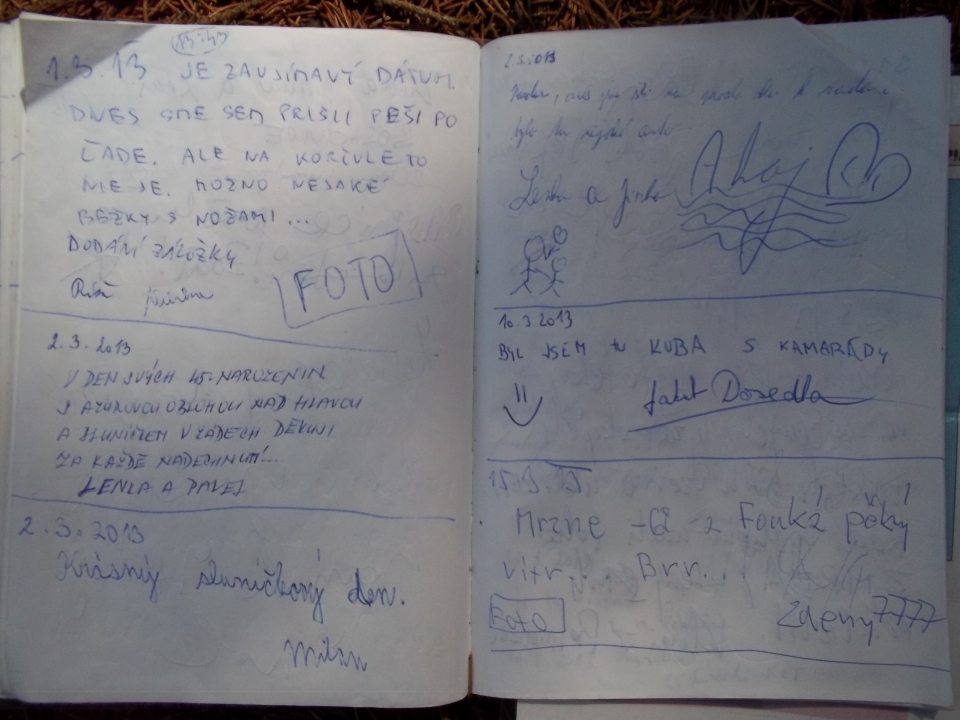 13:43
1.3.13 JE ZAUJÍMAVÝ DÁTUM.
DNES SME SEM PRIŠLI PEŠI PO
ĽADE. ALE NA KORČULE TO
NIE JE. MOŽNO NEJAKÉ
BEŽKY S NOŽAMI...
DODÁNÍ ZÁLOŽKY
FOTO
2.3.2013
V DEN SVÝCH 45. NAROZENIN
S AZUROVOU OBLOHOU NAD HLAVOU
A SLUNÍČKEM V ZÁDECH DĚKUJI
ZA KAŽDÉ NADECHNUTÍ...
LENKA A PAVEL
2.3.2013
Krásný sluníčkový den.
Milan
2.3.2013
bylo tu nějaké auto.
Lenka a Jirka
Ahoj
10.3.2013
BYL JSEM tu KUBA S KAMARÁDY
Jakub Dosedla
15.3.
Mrzne -6 a Fouká pěkný
vítr.. Brr..
FOTO
Zdeny7777